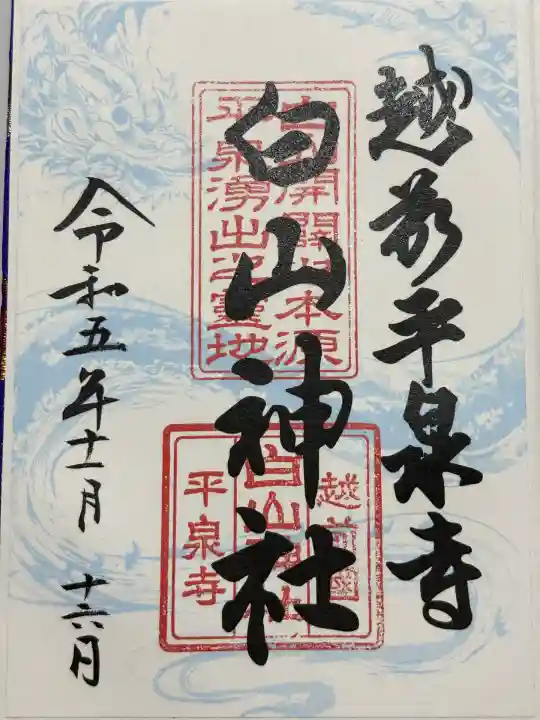 越前平泉寺
白山神社
令和五年十一月十六日
開闢
本源
平泉湧出之靈地
越前
白山神社
平泉寺